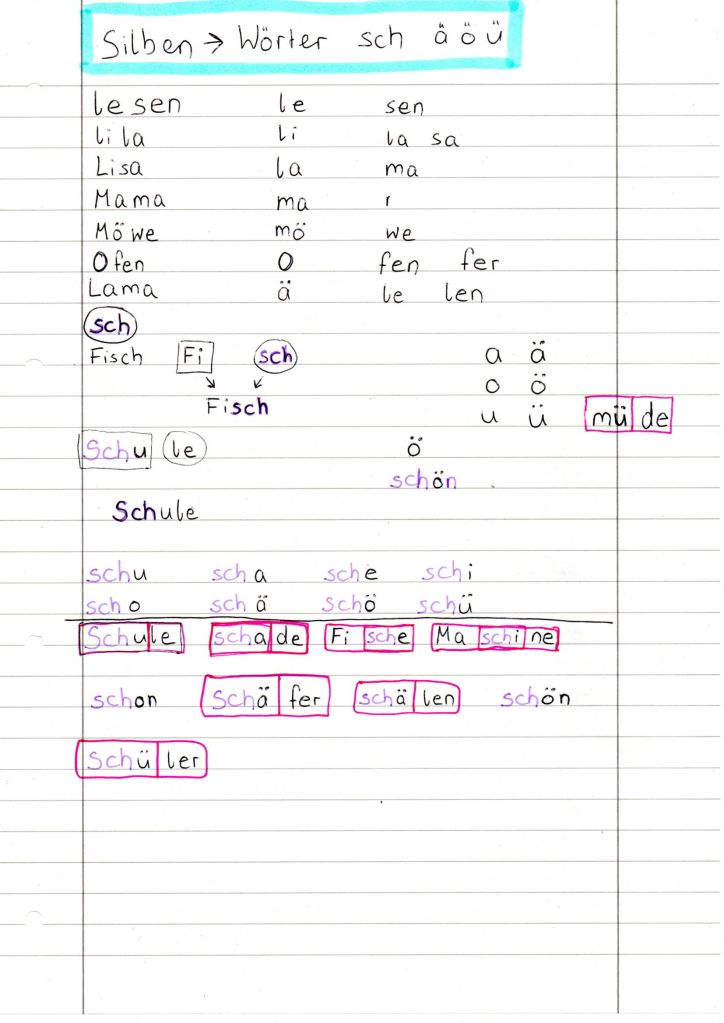 Silben → Wörter sch ä ö ü
lesen le sen
lila li la sa
Lisa la ma
Mama ma r
Möwe mö we
Ofen O fen fer
Lama ä le len
sch
Fisch Fi sch a ä
o ö
Fisch
u ü mü de
Schu le ö
schön
Schule
schu scha sche schi
scho schä schö schü
Schule schade Fi sche Ma schi ne
schon Schä fer schä len schön
Schü ler